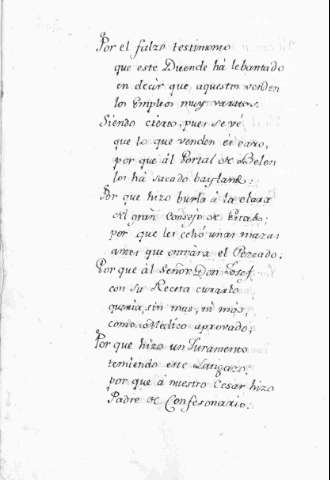 Por el falzo testimonio
que este Duende há lebantado
en decir que aquestos venden
los Empleos muy varatos.
Siendo cierto, pues se vé
que lo que venden es caro,
por que àl Portal de Belen
los há sacado bastante.
Por que hizo burla à la clara
del gran Consejo de Estado;
por que les echó unas mazas
antes que entràra el Pezcado;
Por que àl Señor Don Josef
con su Receta curarlo
queria, sin mas, ni mas
como Medico aprovado;
Por que hizo un Juramento
temiendo este
por que à nuestro Cesar hizo
Padre de Confesonario.